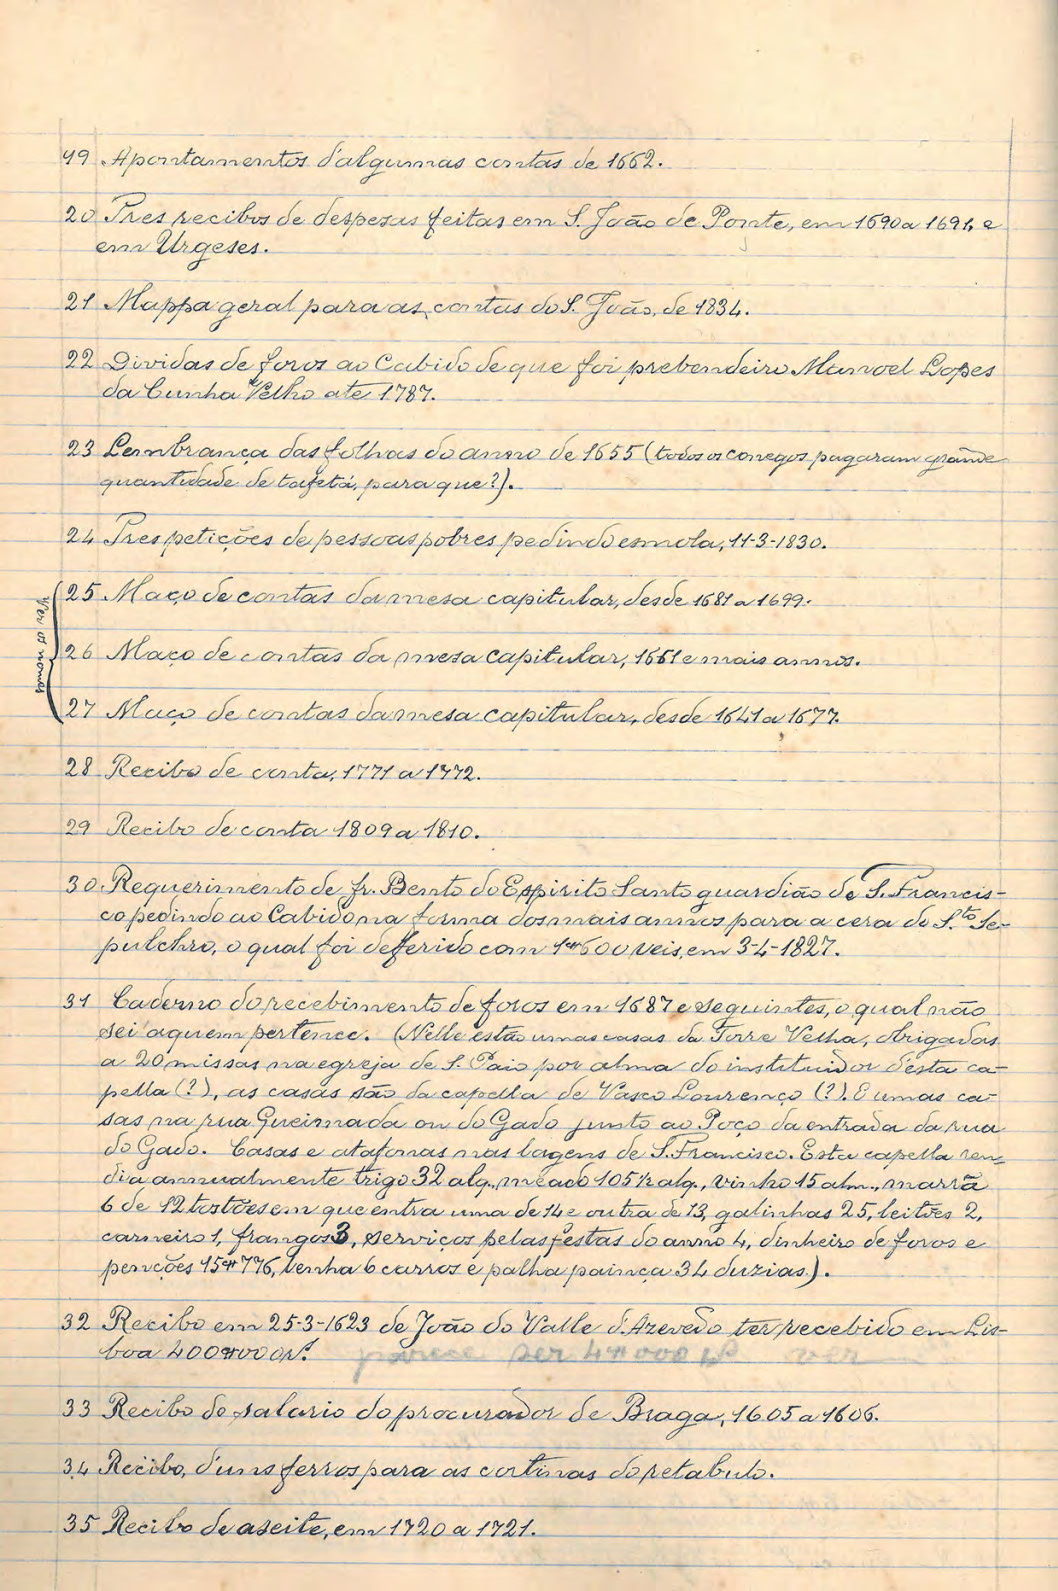 19 Apontamentos d'algumas contas de 1662.
20 Tres recibos de despesas feitas em S. João de Ponte, em 1690 a 1691, e
em Urgeses.
21 Mappa geral para as contas do S. João, de 1834.
22 Dividas de foros ao Cabido de que foi prebendeiro Manoel Lopes
da Cunha Velho até 1787.
23 Lembrança das folhas do anno de 1655 (todos os conegos pagaram grande
quantidade de tafetá, para que?).
24 Tres petições de pessoas pobres pedindo esmola, 11-3-1830.
Ver os nomes
25 Maço de contas da mesa capitular, desde 1681 a 1699.
26 Maço de contas da mesa capitular, 1661 e mais annos.
27 Maço de contas da mesa capitular, desde 1641 a 1677.
28 Recibo de conta, 1771 a 1772.
29 Recibo de conta 1809 a 1810.
30 Requerimento de fr. Bento do Espirito Santo guardião de S. Francis-
co pedindo ao Cabido na forma dos mais annos para a cera do S.to Se-
pulchro, o qual foi defferido com 1$600 reis, em 3-4-1827.
31 Caderno do recebimento de foros em 1687 e seguintes, o qual não
sei a quem pertence. (Nelle estão umas casas da Torre Velha, obrigadas
a 20 missas na egreja de S. Paio por alma do instituidor d'esta ca-
pella (?), as casas são da capella de Vasco Lourenço (?). E umas ca-
sas na rua Queimada ou do Gado junto ao Poço da entrada da rua
do Gado. Casas e atafonas nas lagens de S. Francisco. Esta capella ren-
dia annualmente trigo 32 alq., meado 105½ alq., vinho 15 alm., marrã
6 de 12 tostões em que entra uma de 14 e outra de 13, galinhas 25, leitões 2,
carneiro 1, frangos 3, serviços pelas festas do anno 4, dinheiro de foros e
penções 15$776, lenha 6 carros e palha painça 34 duzias).
32 Recibo em 25-3-1623 de João do Valle d'Azevedo ter recebido em Lis-
boa 400$000 rs. parece ser 4$000 rs ver
33 Recibo do salario do procurador de Braga, 1605 a 1606.
34 Recibo, d'uns ferros para as cortinas do retabulo.
35 Recibo de aseite, em 1720 a 1721.